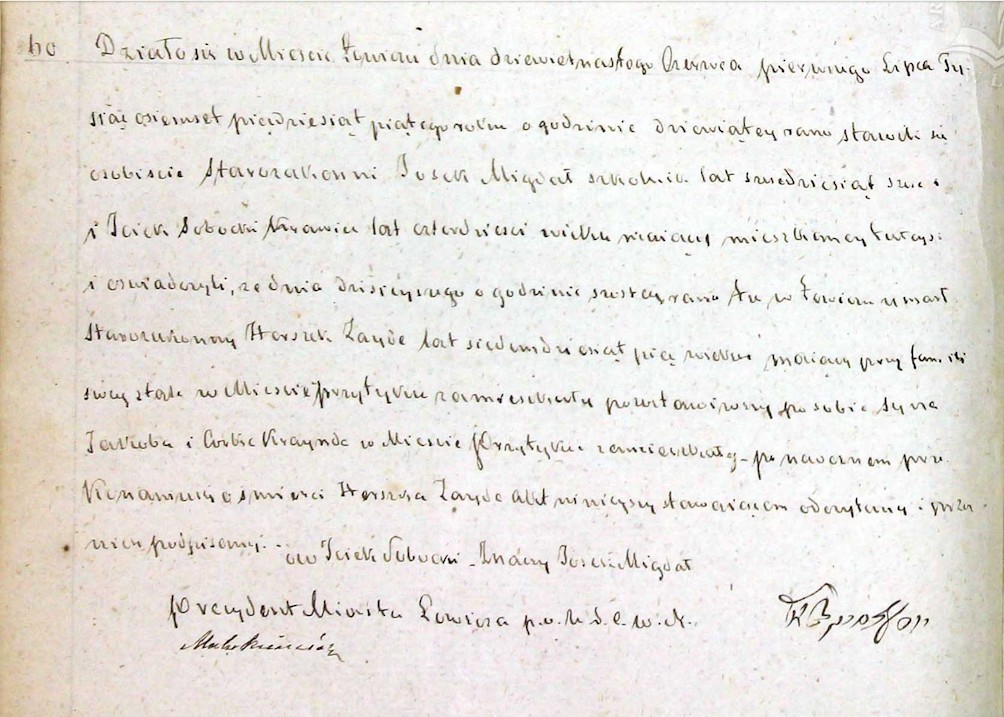 60 Działo się w Mieście Łowiczu dnia dziewiętnastego Czerwca pierwszego Lipca Ty-
siąc ośiemset pięćdziesiąt piątego roku o godzinie dziewiątey rano stawili się
osobiscie Starozakonni Josek Migdał szkolnik lat sześćdziesiąt sześć i
i Iciek Sobocki Krawiec lat czterdzieści wieku maiący mieszkaiący tutaysi
i oswiadczyli, że dnia dzisieyszego o godzinie szóstey rano tu w Łowiczu umarł
Starozakonny Herszek Zayde lat siedemdziesiąt pięć wieku maiący przy familii
swey stale w Mieście Przytyku zamieszkały pozostawiwszy po sobie syna
Jakóba i Córkę Krayndę w Mieście Przytyku zamieszkałych po naocznem prze-
konaniu się o śmierci Herszka Zayde Akt ninieyszy stawaiącem odczytany i przez
nich podpisany.
Icick Sobocki Josek Migdał
Prezydent Miasta Łowicza p.o. U.S.C.w.n.